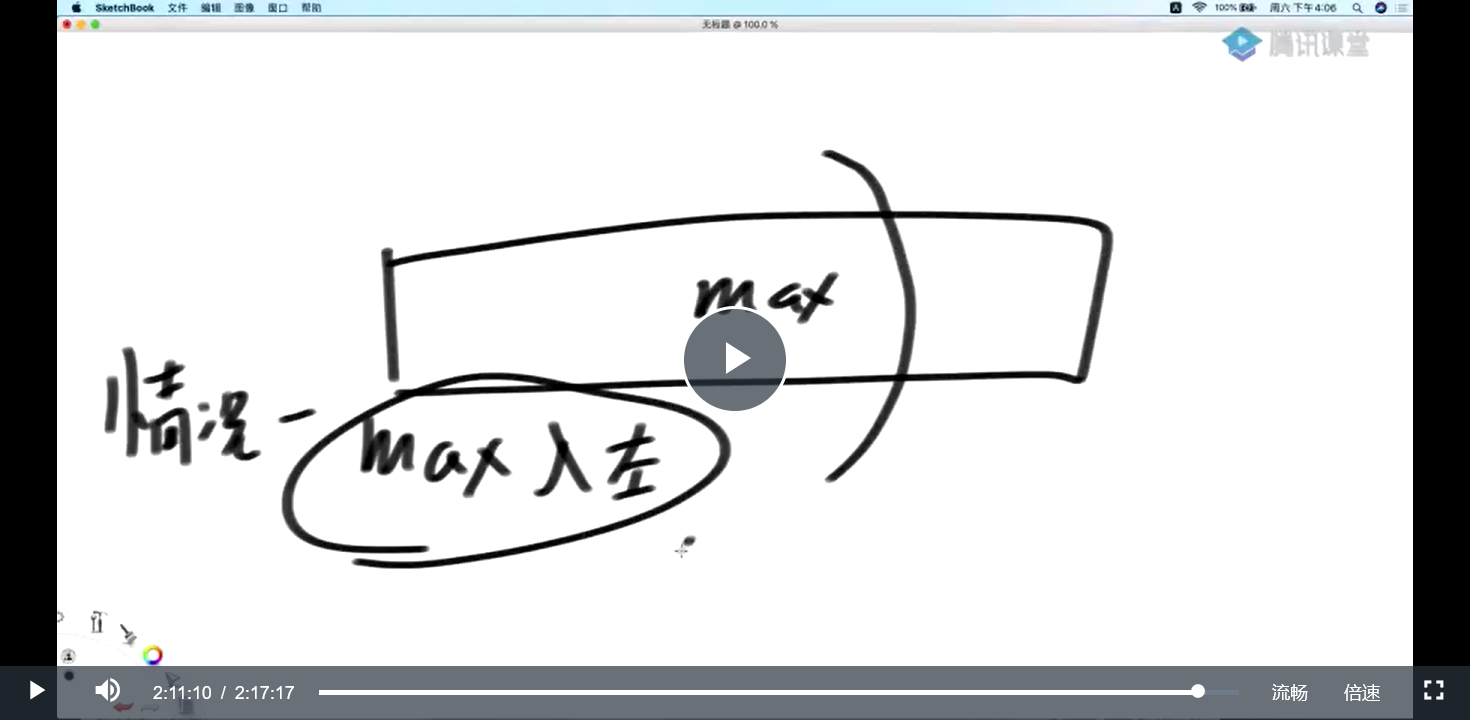 SketchBook 文件 编辑 图像 窗口 帮助 100% 周六 下午4:06
无标题 @ 100.0 %
腾讯课堂
max
情况一
max 入左
2:11:10 / 2:17:17 流畅 倍速